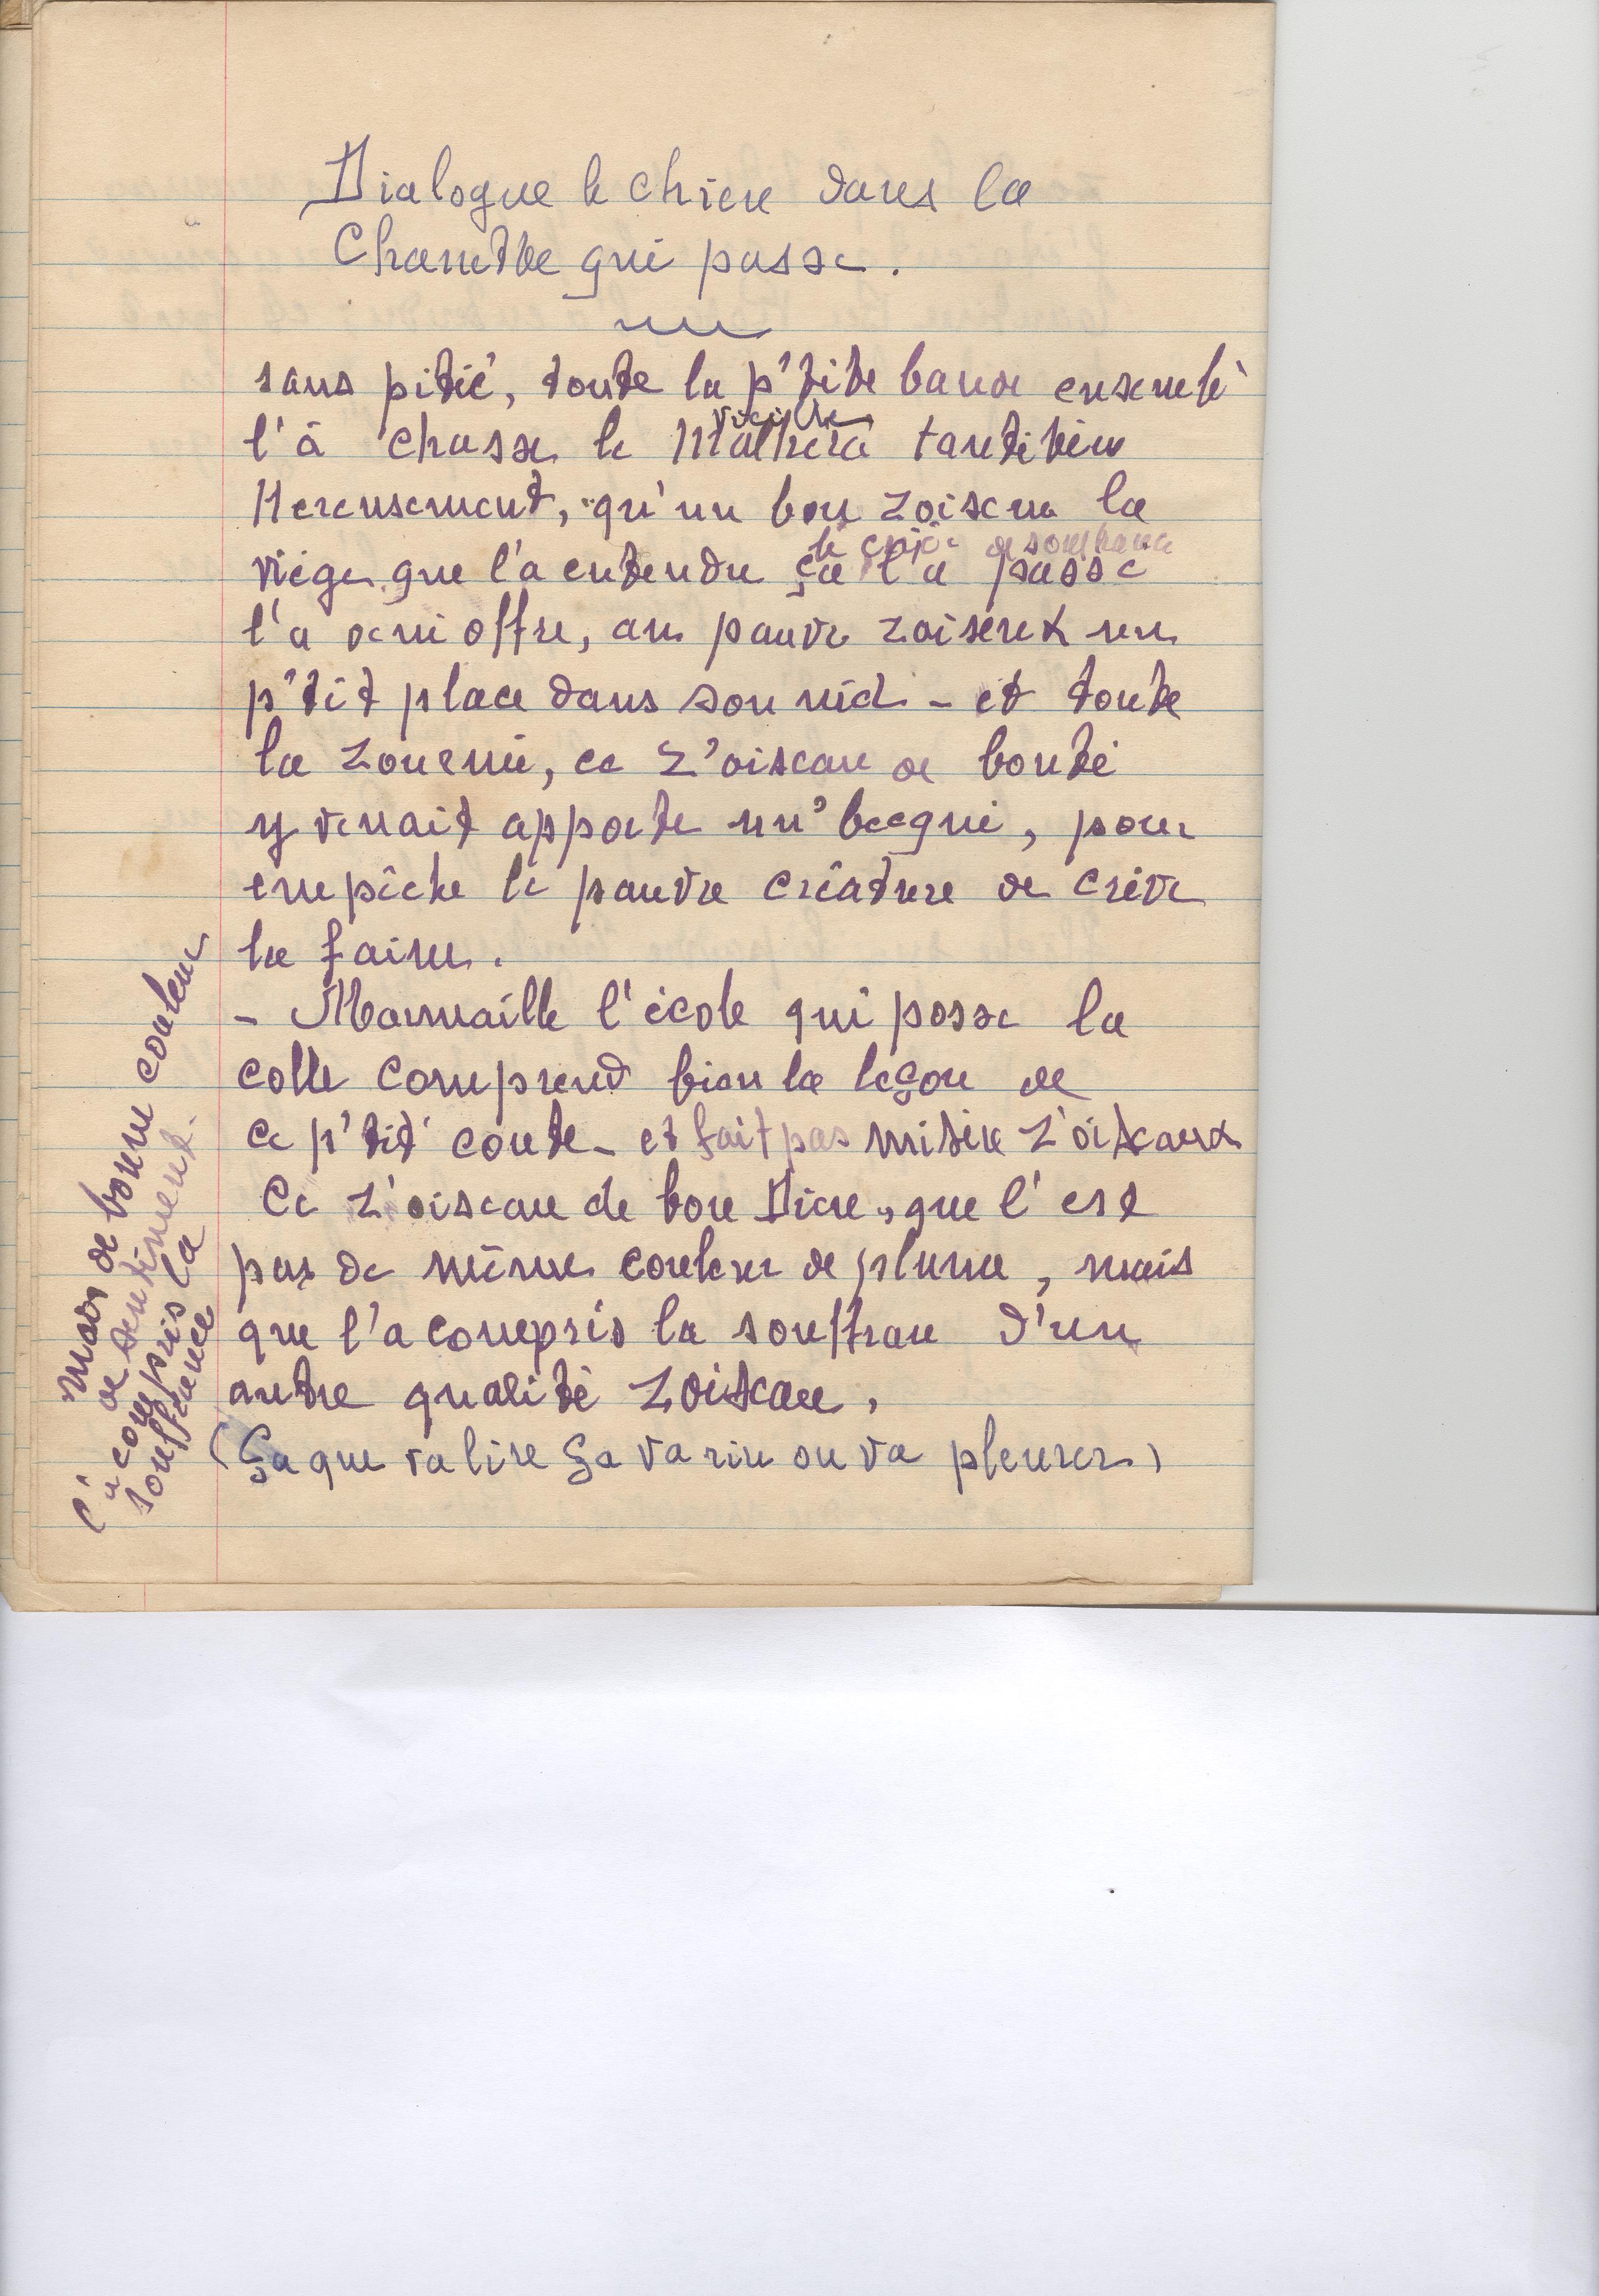 Dialogue le chien dans la
Chambre qui passe.
sans pitié, toute la p'tite bande ensemble
vieille
l'à chasse le Malhère tantibien
Hereusement, qu'un bon zoiseau la
le crié de souffrance
viège que l'a entendu ça l'a passe
l'a veni offre, au pauve zoiseux un
p'tit place dans son nid - et toute
la zournée, ce z'oiseau de bonté
y venait apporte un' becqué, pour
empêche le pauvre créature de crève
la faim.
- Marmaille l'école qui posse la
colle comprend bien la leçon de
ce p'tit conte - et fait pas misère z'oiseaux
Ce z'oiseau de bon Dieu, que l'est
pas de même couleur de plume, mais
que l'a compris la souffran d'un
autre qualité zoiseau.
(Ça que va lire ça va rire ou va pleurer)
mais de bonne couleur
de sentiment.
l'a compris la
souffrance